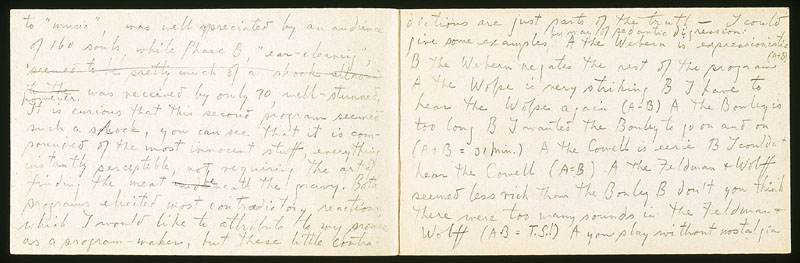 to "music", was well appreciated by an audience
of 160 souls, while Phase B, "ear-cleaning",
seemed to be pretty much of a shock
however. was received by only 70, well-stunned,
It is curious that this second program seemed
such a shock, you can see that it is com-
pounded of the most innocent stuff, everything
instantly perceptible, not requiring the art of
finding the meat beneath the gravy. Both
programs elicited most contradictory reactions
which I would like to attribute to my
as a program-maker, but these little contra-
dictions are just parts of the truth — I could
give some examples, by way of pedantic digression:
A the Webern is expressionistic
B the Webern negates the rest of the program (A=B)
A the Wolpe is very striking B I have to
hear the Wolpe again (A=B) A the Boulez is
too long B I wanted the Boulez to go on and on
(A+B = 31 min.) A the Cowell is eerie B I couldn't
hear the Cowell (A=B) A the Feldman + Wolff
seemed less rich than the Boulez B Don't you think
there were too many sounds in the Feldman +
Wolff (A+B = T.S.!) A you play without nostalgia